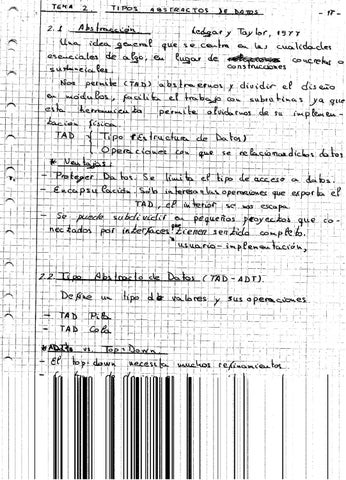 TEMA 2 TIPOS ABSTRACTOS DE DATOS - 18 -
2.1 Abstracción. Ledgar y Taylor, 1977
Una idea general que se centra en las cualidades
esenciales de algo, en lugar de concretos o
construcciones
sustanciales.
Nos permite (TAD) abstraernos y dividir el diseño
en módulos, facilita el trabajo con subrutinas ya que
esta herramienta permite olvidarnos de su implemen-
tación física.
TAD { Tipo (Estructura de Datos)
Operaciones con que se relacionan dichos datos
* Ventajas:
- Proteger Datos. Se limita el tipo de acceso a datos.
- Encapsulación. Sólo interesan las operaciones que exporta el
TAD, el interior se nos escapa.
- Se puede subdividir en pequeños proyectos que co-
nectados por interfaces tienen sentido completo.
usuario-implementación,
2.2 Tipo Abstracto de Datos (TAD-ADT).
Define un tipo de valores y sus operaciones
- TAD Pila
- TAD Cola
vs. Top-Down
- El top-down necesita muchos refinamientos.